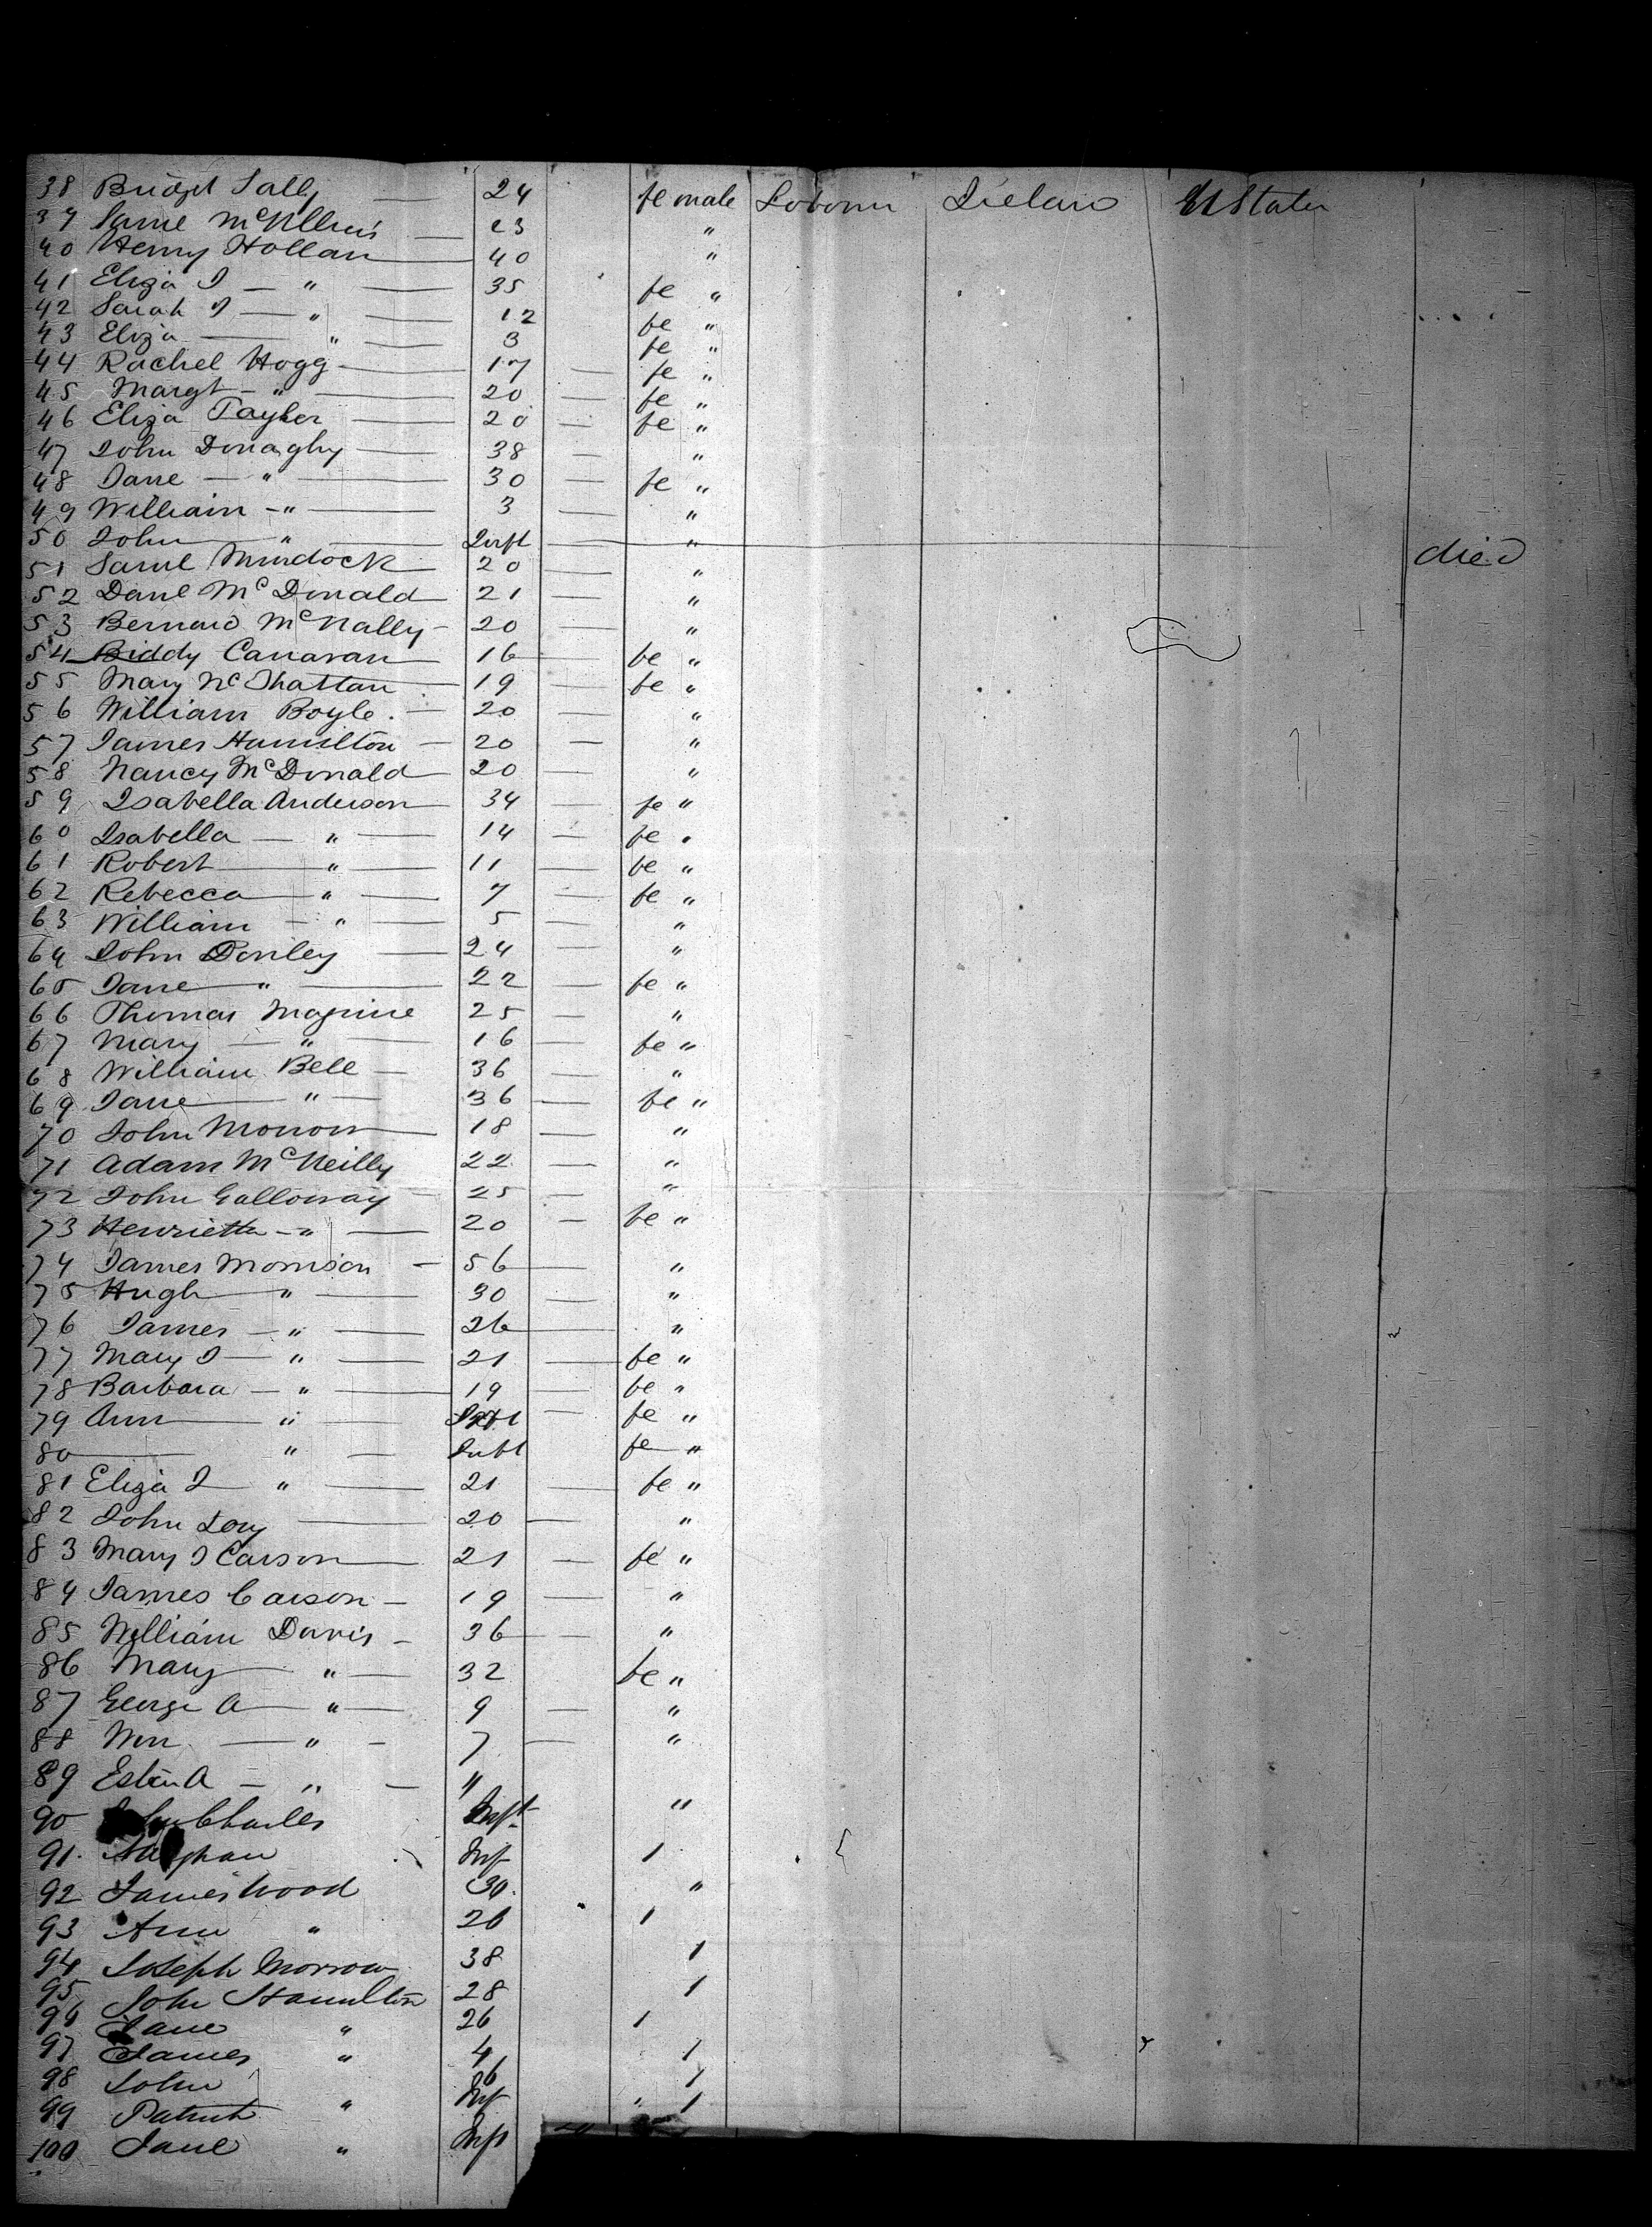 38 Bridget Lally 24 female Labourer Ireland UStates
39 Saml McIllwis 23 "
40 Henry Hollan 40 "
41 Eliza J " 35 fe "
42 Sarah J " 12 fe "
43 Eliza " 3 fe "
44 Rachel Hogg 17 fe "
45 Margt " 20 fe "
46 Eliza Taylor 20 fe "
47 John Donaghy 38 "
48 Jane " 30 fe "
49 William " 3 "
50 John " Inft " died
51 Saml Murdock 20 "
52 Danl McDonald 21 "
53 Bernard McNally 20 "
54 Biddy Canavan 16 fe "
55 Mary McShattan 19 fe "
56 William Boyle 20 "
57 James Hamilton 20 "
58 Nancy McDonald 20 "
59 Isabella Anderson 34 fe "
60 Isabella " 14 fe "
61 Robert " 11 fe "
62 Rebecca " 7 fe "
63 William " 5 "
64 John Donley 24 "
65 Jane " 22 fe "
66 Thomas 25 "
67 Mary " 16 fe "
68 William Bell 36 "
69 Jane " 36 fe "
70 John Morrow 18 "
71 Adam McNeilly 22 "
72 John Galloway 25 "
73 Henrietta " 20 fe "
74 James Morrison 56 "
75 Hugh " 30 "
76 James " 26 "
77 Mary J " 21 fe "
78 Barbara " 19 fe "
79 Ann " Inft fe "
80 " Inft fe "
81 Eliza J " 21 fe "
82 John Lory 20 "
83 Mary J Carson 21 fe "
84 James Carson 19 "
85 William Davis 36 "
86 Mary " 32 fe "
87 George A " 9 "
88 Wm " 7 "
89 A " "
90 Charles Inft "
91 Inf 1
92 James Wood 30 "
93 Ann " 26 1
94 Joseph Morrow 38 1
95 John Hamilton 28 1
96 Jane " 26 1
97 James " 4 1
98 John 6 1
99 Patrick " Inf " 1
100 Jane " Inft